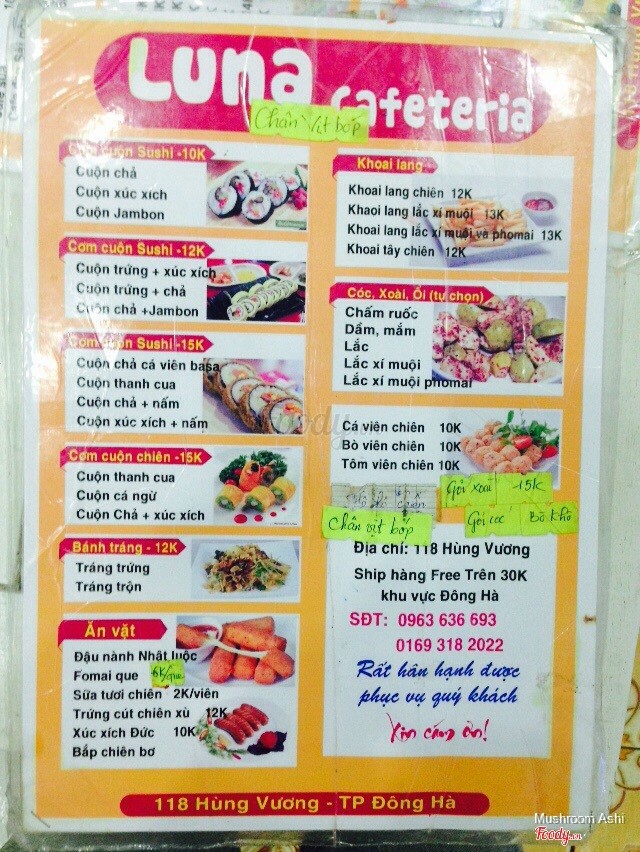 Luna
cafeteria
Chân Vịt bóp
Cơm cuộn Sushi -10K
Cuộn chả
Cuộn xúc xích
Cuộn Jambon
Cơm cuộn Sushi -12K
Cuộn trứng + xúc xích
Cuộn trứng + chả
Cuộn chả +Jambon
Cơm cuộn Sushi -15K
Cuộn chả cá viên basa
Cuộn thanh cua
Cuộn chả + nấm
Cuộn xúc xích + nấm
Cơm cuộn chiên -15K
Cuộn thanh cua
Cuộn cá ngừ
Cuộn Chả + xúc xích
Bánh tráng - 12K
Tráng trứng
Tráng trộn
Ăn vặt
Đậu nành Nhật luộc
Fomai que 6K/que
Sữa tươi chiên 2K/viên
Trứng cút chiên xù 12K
Xúc xích Đức 10K
Bắp chiên bơ
Khoai lang
Khoai lang chiên 12K
Khaoi lang lắc xí muội 13K
Khoai lang lắc xí muội và phomai 13K
Khoai tây chiên 12K
Cóc, Xoài, Ổi (tự chọn)
Chấm ruốc
Dầm, mắm
Lắc
Lắc xí muội
Lắc xí muội phomai
Cá viên chiên 10K
Bò viên chiên 10K
Tôm viên chiên 10K
Gỏi xoài 15K
Chân vịt bóp
Gỏi cóc Bò khô
Địa chỉ: 118 Hùng Vương
Ship hàng Free Trên 30K
khu vực Đông Hà
SĐT: 0963 636 693
0169 318 2022
Rất hân hạnh được
phục vụ quý khách
Xin cảm ơn!
118 Hùng Vương - TP Đông Hà
Mushroom Ashi
Foody.vn